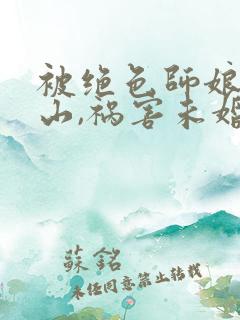 被绝色师娘
山,祸害未婚
蘇銘
未经同意禁止转载